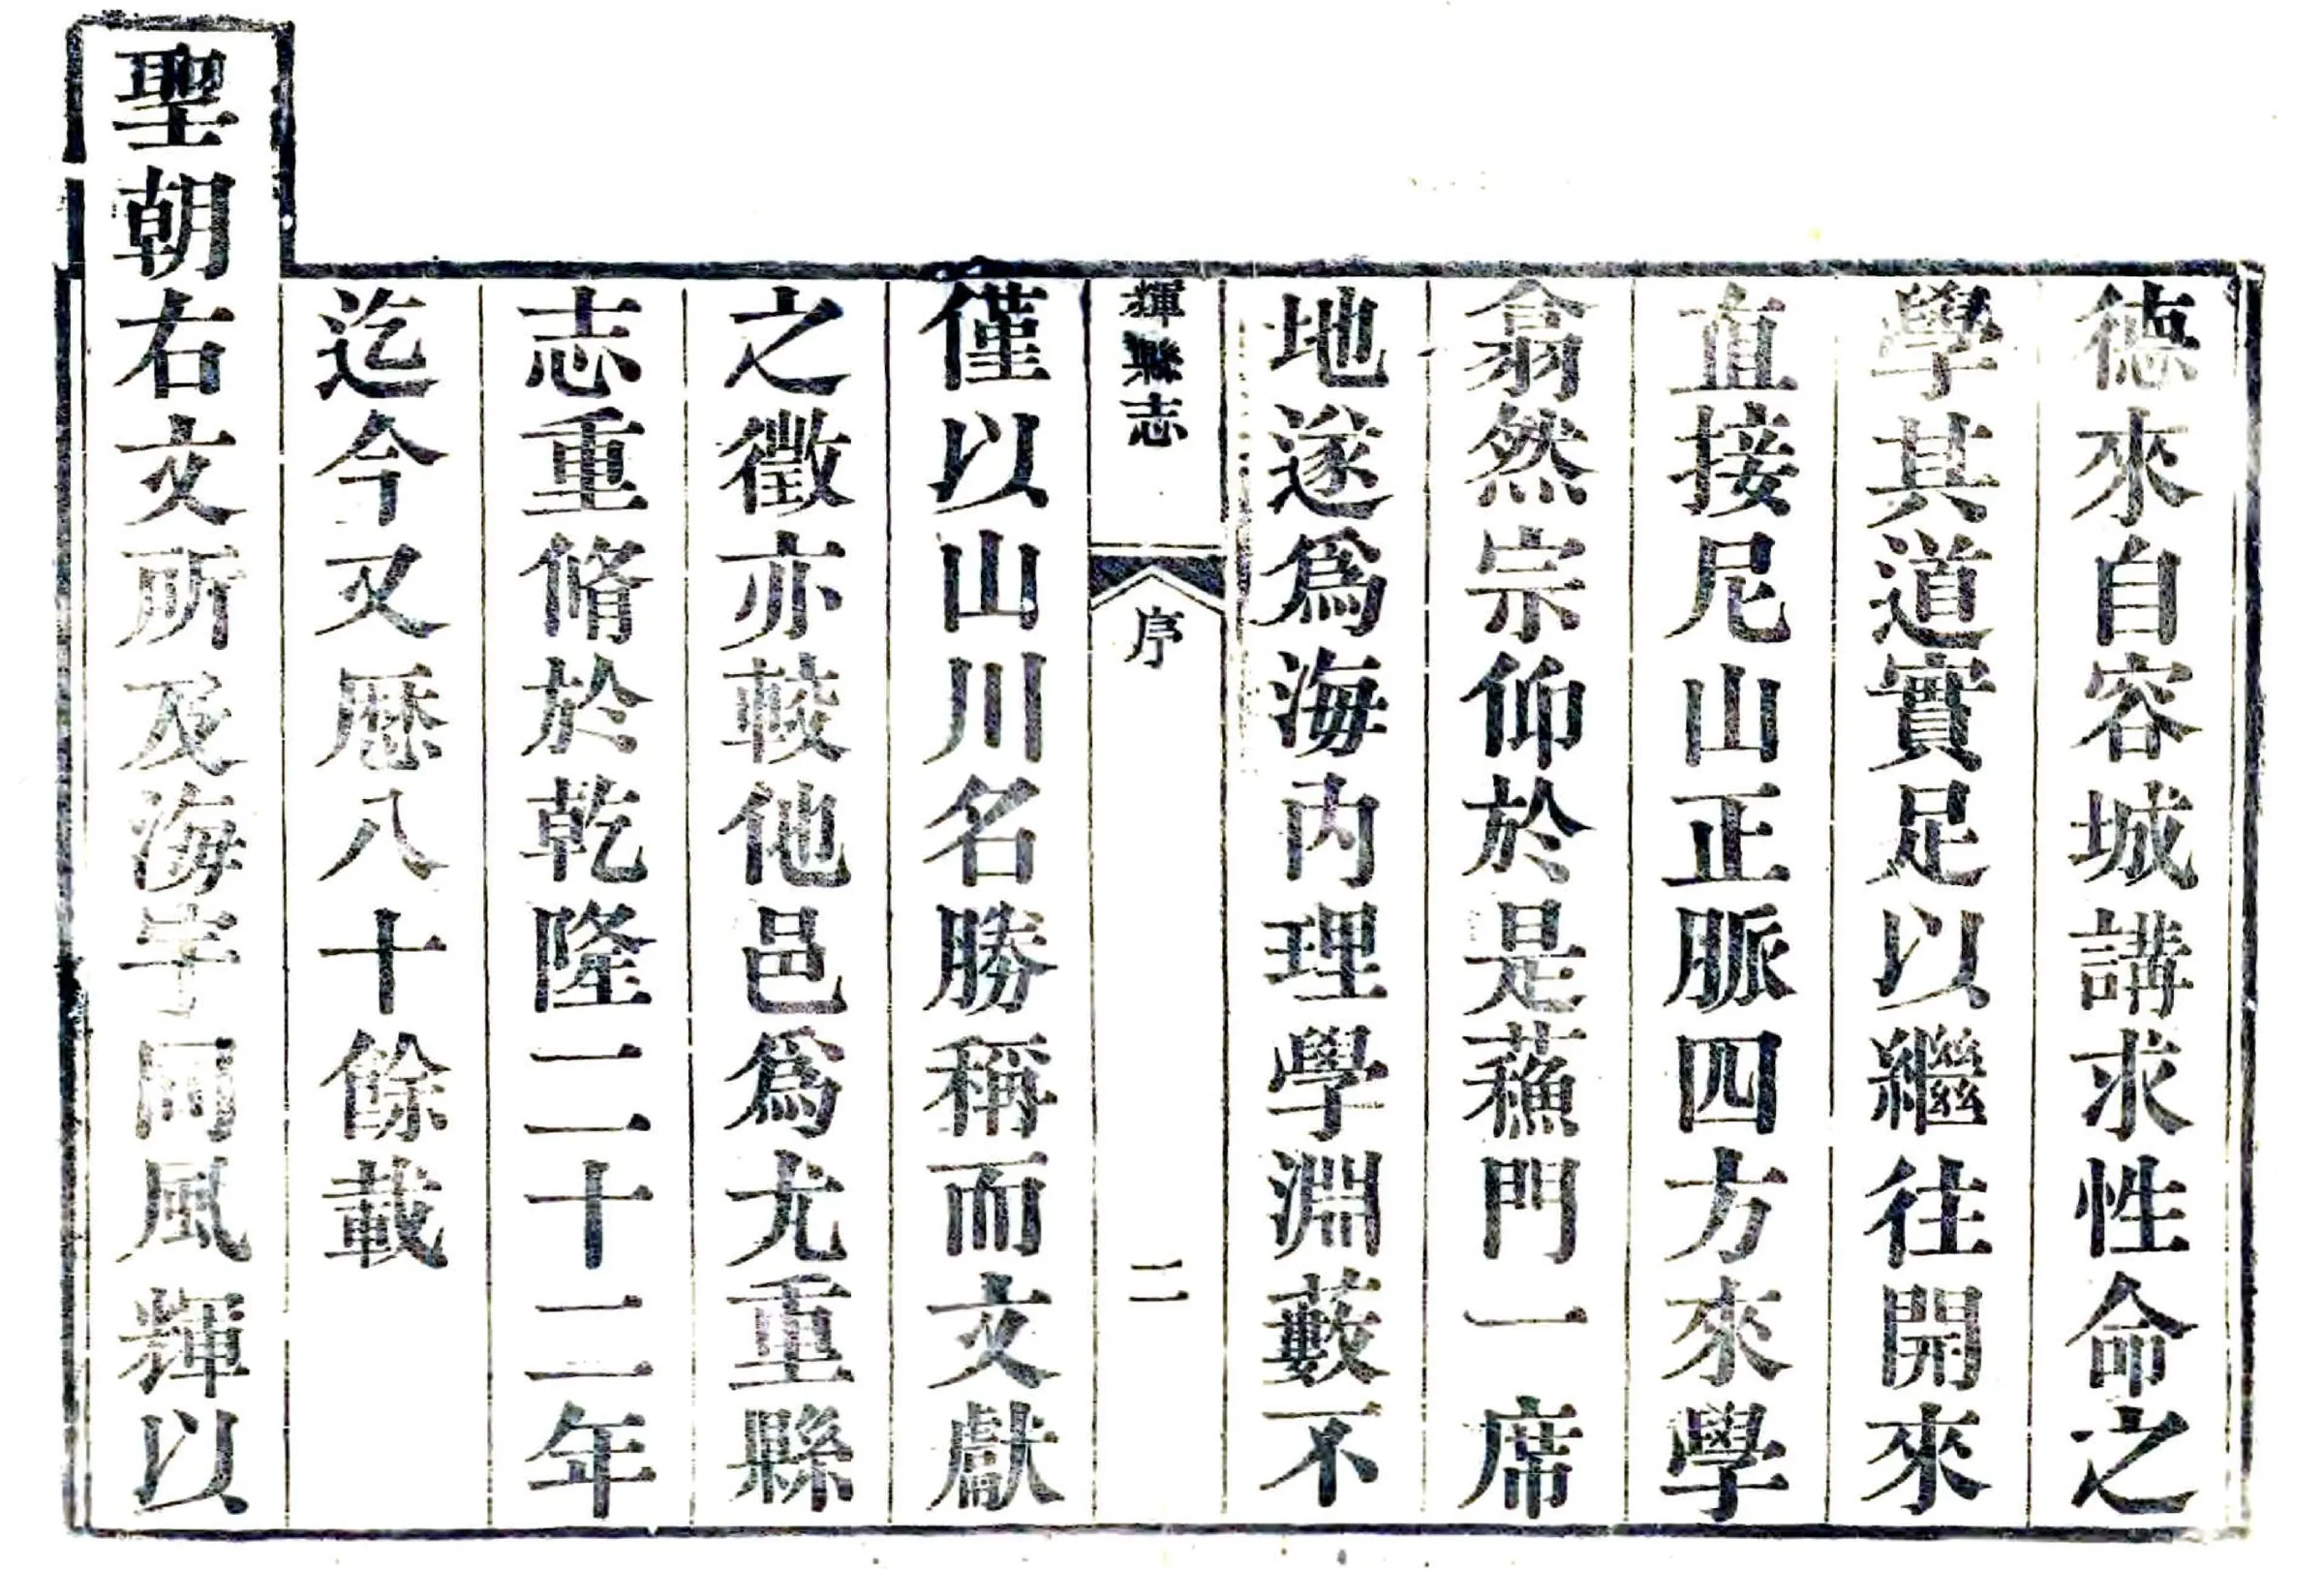 德來自容城講求性命之
學其道實足以繼往開來
直接尼山正脈四方來學
翕然宗仰於是蘓門一席
地遂爲海内理學淵藪不
輝縣志
序
二
僅以山川名勝稱而文獻
之徵亦較他邑爲尤重縣
志重脩於乾隆二十二年
迄今又歷八十餘載
聖朝右文所及海宇同風輝以